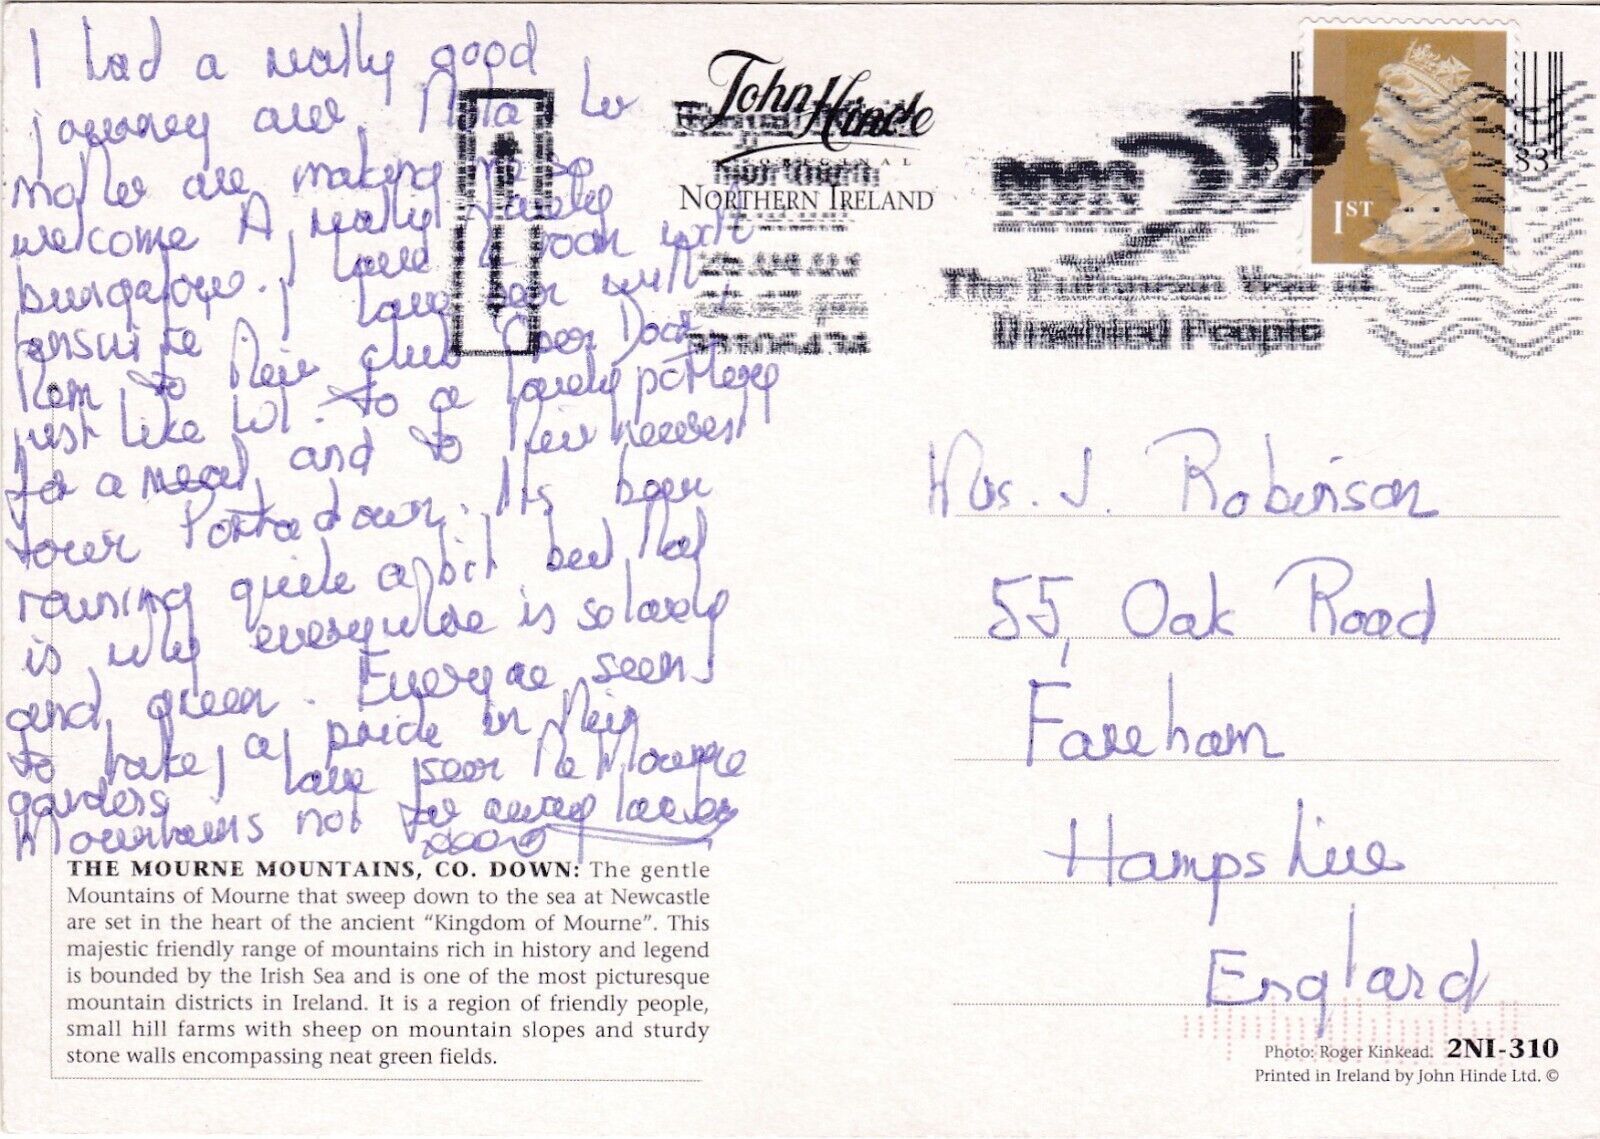 I had a really good
journey over. Nola &
make are making me so
welcome A really lovely
bungalow. I have a room with
ensuite I have been with
them to their club Open Door
just like W.I. to a lovely pottery
for a meal, and to their nearest
town Portadown. Its been
raining quite a bit but that
is why everywhere is so lovely
and green. Everyone seems
to take a pride in their
gardens I have seen the Mourne
Mountains not far away love
xxxx
THE MOURNE MOUNTAINS, CO. DOWN: The gentle
Mountains of Mourne that sweep down to the sea at Newcastle
are set in the heart of the ancient “Kingdom of Mourne”. This
majestic friendly range of mountains rich in history and legend
is bounded by the Irish Sea and is one of the most picturesque
mountain districts in Ireland. It is a region of friendly people,
small hill farms with sheep on mountain slopes and sturdy
stone walls encompassing neat green fields.
John Hinde
ORIGINAL
NORTHERN IRELAND
The European Year of
Disabled People
1ST
Mrs. J. Robinson
55, Oak Road
Fareham
Hampshire
England
Photo: Roger Kinkead. 2NI-310
Printed in Ireland by John Hinde Ltd. ©